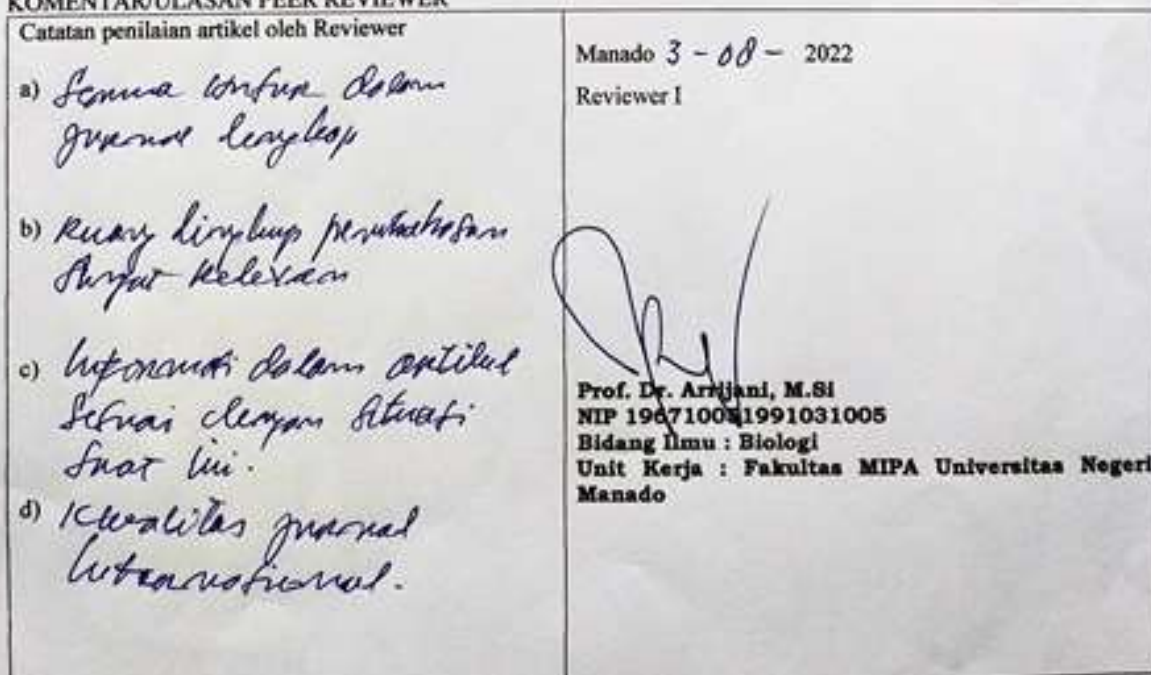 KOMENTAR/ULASAN PEER REVIEWER
Catatan penilaian artikel oleh Reviewer
a) Semua unsur dalam
jurnal lengkap
b) Ruang lingkup pembahasan
sangat relevan
c) Informasi dalam artikel
sesuai dengan situasi
saat ini.
d) Kwalitas jurnal
Internasional.
Manado 3 - 08 - 2022
Reviewer I
Prof. Dr. Arrijani, M.Si
NIP 196710051991031005
Bidang Ilmu : Biologi
Unit Kerja : Fakultas MIPA Universitas Negeri
Manado